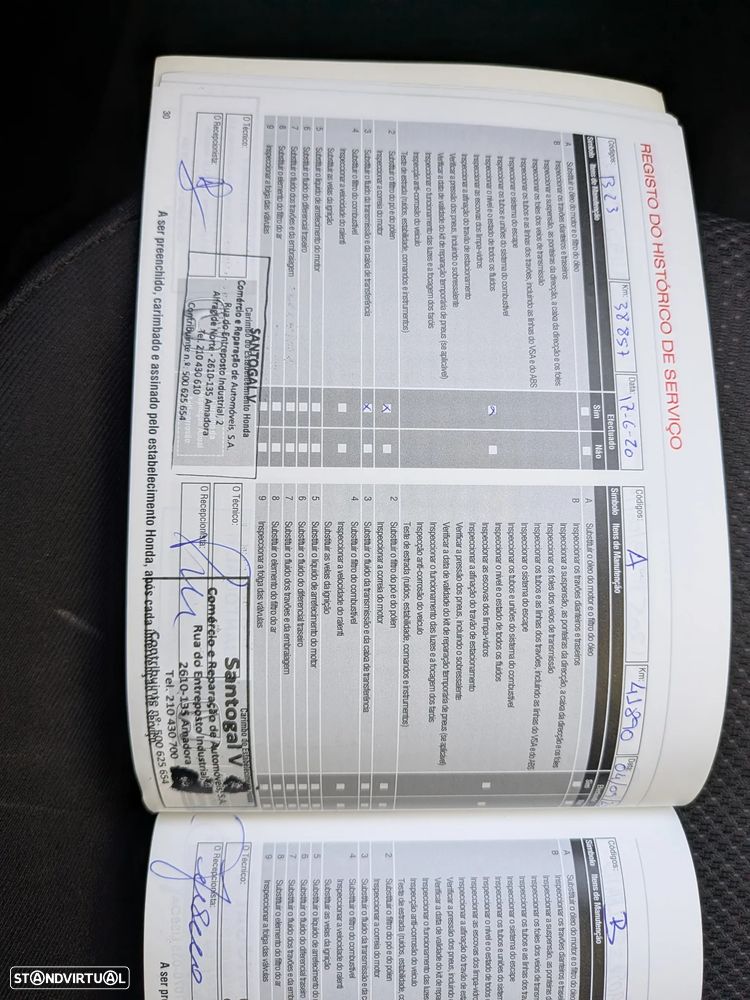 REGISTO DO HISTÓRICO DE SERVIÇO
Códigos: B 23 Km: 38 857 Data: 17-6-20
Símbolo Itens de Manutenção Efectuado
Sim Não
A Substituir o óleo do motor e o filtro do óleo
B Inspeccionar os travões dianteiros e traseiros
Inspeccionar a suspensão, as ponteiras da direcção, a caixa da direcção e os foles
Inspeccionar os foles dos veios de transmissão
Inspeccionar os tubos e as linhas dos travões, incluindo as linhas do VSA e do ABS
Inspeccionar o sistema do escape
Inspeccionar os tubos e uniões do sistema do combustível
Inspeccionar o nível e o estado de todos os fluidos
Inspeccionar as escovas dos limpa-vidros
Inspeccionar a afinação do travão de estacionamento
Verificar a pressão dos pneus, incluindo o sobressalente
Verificar a data de validade do kit de reparação temporária de pneus (se aplicável)
Inspeccionar o funcionamento das luzes e a focagem dos faróis
Inspecção anti-corrosão do veículo
Teste de estrada (ruídos, estabilidade, comandos e instrumentos)
2 Substituir o filtro do pó e do pólen X
Inspeccionar a correia do motor
3 Substituir o fluido da transmissão e da caixa de transferência X
4 Substituir o filtro do combustível
Inspeccionar a velocidade do ralenti
Substituir as velas da ignição
5 Substituir o líquido de arrefecimento do motor
6 Substituir o fluido do diferencial traseiro
7 Substituir o fluido dos travões e da embraiagem
8 Substituir o elemento do filtro do ar
9 Inspeccionar a folga das válvulas
O Técnico:
O Recepcionista:
Carimbo do Estabelecimento Honda
SANTOGAL V
Comércio e Reparação de Automóveis, S.A.
Rua do Entreposto Industrial, 2
Alfragide Norte - 2610-135 Amadora
Tel. 210 430 610
Contribuinte n.º 500 625 654
30
A ser preenchido, carimbado e assinado pelo estabelecimento Honda, após cada
Códigos: A Km: 41890 Data: 04/09/
Símbolo Itens de Manutenção
A Substituir o óleo do motor e o filtro do óleo
B Inspeccionar os travões dianteiros e traseiros
Inspeccionar a suspensão, as ponteiras da direcção, a caixa da direcção e os foles
Inspeccionar os foles dos veios de transmissão
Inspeccionar os tubos e as linhas dos travões, incluindo as linhas do VSA e do ABS
Inspeccionar o sistema do escape
Inspeccionar os tubos e uniões do sistema do combustível
Inspeccionar o nível e o estado de todos os fluidos
Inspeccionar as escovas dos limpa-vidros
Inspeccionar a afinação do travão de estacionamento
Verificar a pressão dos pneus, incluindo o sobressalente
Verificar a data de validade do kit de reparação temporária de pneus (se aplicável)
Inspeccionar o funcionamento das luzes e a focagem dos faróis
Inspecção anti-corrosão do veículo
Teste de estrada (ruídos, estabilidade, comandos e instrumentos)
2 Substituir o filtro do pó e do pólen
Inspeccionar a correia do motor
3 Substituir o fluido da transmissão e da caixa de transferência
4 Substituir o filtro do combustível
Inspeccionar a velocidade do ralenti
Substituir as velas da ignição
5 Substituir o líquido de arrefecimento do motor
6 Substituir o fluido do diferencial traseiro
7 Substituir o fluido dos travões e da embraiagem
8 Substituir o elemento do filtro do ar
9 Inspeccionar a folga das válvulas
O Técnico:
O Recepcionista:
Carimbo do Estabelecimento
Santogal V
Comércio e Reparação de Automóveis, S.A.
Rua do Entreposto Industrial,
2610-135 Amadora
Tel. 210 430 700
Contribuinte nº: 500 625 654
Códigos: B
Símbolo Itens de Manutenção
A Substituir o óleo do motor e o filtro do óleo
B Inspeccionar os travões dianteiros e traseiros
Inspeccionar a suspensão, as ponteiras da
Inspeccionar os foles dos veios de transmissão
Inspeccionar os tubos e as linhas dos travões,
Inspeccionar o sistema do escape
Inspeccionar os tubos e uniões do sistema do
Inspeccionar o nível e o estado de todos os
Inspeccionar as escovas dos limpa-vidros
Inspeccionar a afinação do travão de estacionamento
Verificar a pressão dos pneus, incluindo o
Verificar a data de validade do kit de repara
Inspeccionar o funcionamento das luzes e
Inspecção anti-corrosão do veículo
Teste de estrada (ruídos, estabilidade, c
2 Substituir o filtro do pó e do pólen
Inspeccionar a correia do motor
3 Substituir o fluido da transmissão e da
4 Substituir o filtro do combustível
Inspeccionar a velocidade do ralenti
Substituir as velas da ignição
5 Substituir o líquido de arrefecimento do
6 Substituir o fluido do diferencial traseiro
7 Substituir o fluido dos travões e da em
8 Substituir o elemento do filtro do ar
9 Inspeccionar a folga das válvulas
O Técnico:
O Recepcionista:
A ser pr
STANDVIRTUAL